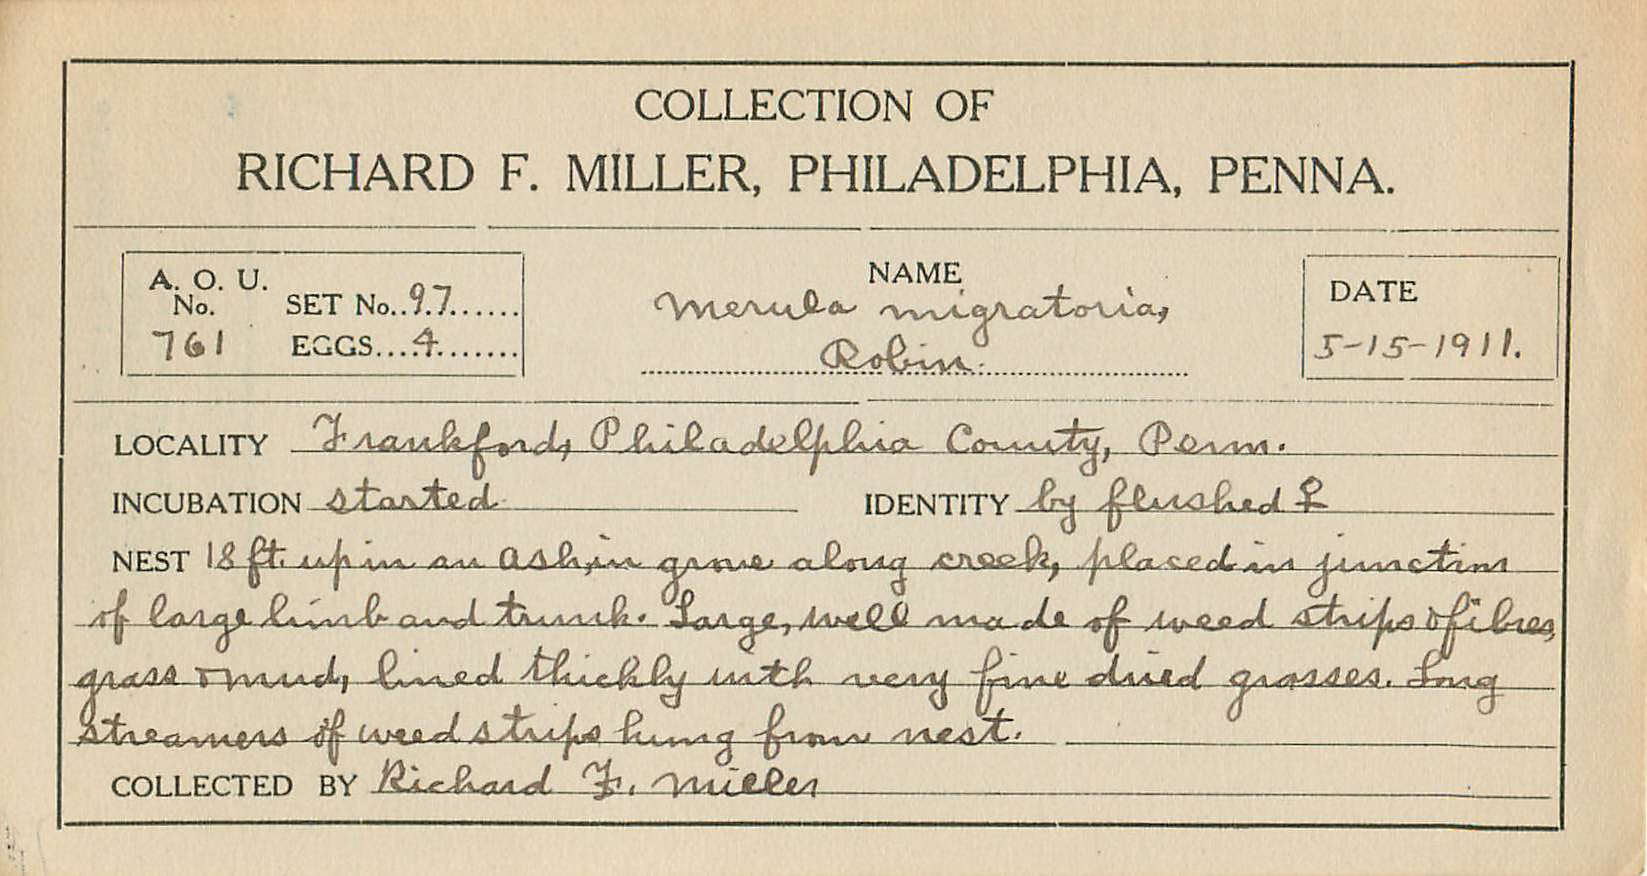 COLLECTION OF
RICHARD F. MILLER, PHILADELPHIA, PENNA.
A. O. U. No. 761
SET No..97......
EGGS....4.......
NAME
Merula migratoria,
Robin.
DATE
5-15-1911.
LOCALITY Frankford, Philadelphia County, Penn.
INCUBATION started
IDENTITY by flushed ♀
NEST 18 ft. up in an Ash, in grove along creek, placed in junction
of large limb and trunk. Large, well made of weed strips & fibres,
grass & mud, lined thickly with very fine dried grasses. Long
streamers of weed strips hung from nest.
COLLECTED BY Richard F. Miller